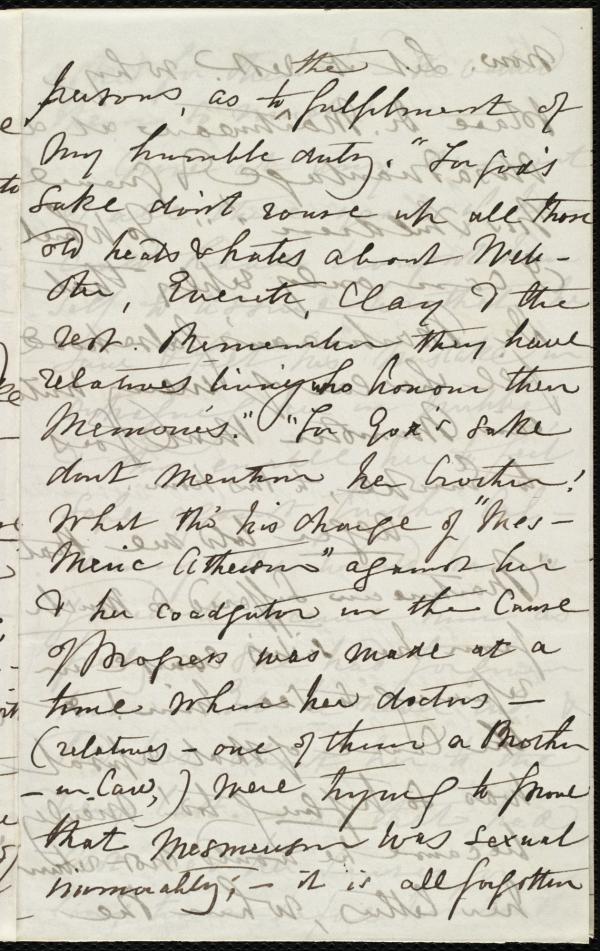 persons, as to the fulfilment of
my humble duty. "For God's
sake don't rouse up all those
old heats & hates about Web-
ster, Everett, Clay & the
rest. Remember they have
relatives living who honour their
memories." "For God's sake
dont mention her brother!
What tho' his charge of "Mes-
meric Atheism" against her
& her coadjutor in the Cause
of Progress was made at a
time when her doctors —
(relatives - one of them a Brother
- in-Law,) were trying to prove
that mesmerism was sexual
immorality; - it is all forgotten